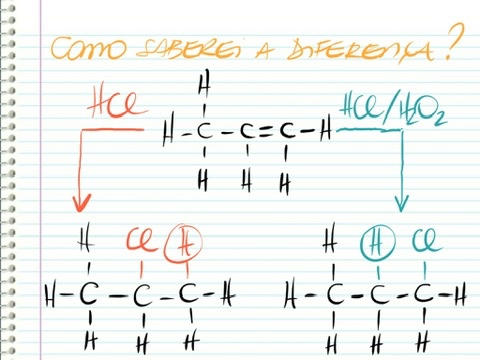 COMO SABEREI A DIFERENÇA?
HCl HCl/H2O2
H
H-C-C=C-H
H H H
H Cl H H H Cl
H-C-C-C-H H-C-C-C-H
H H H H H H